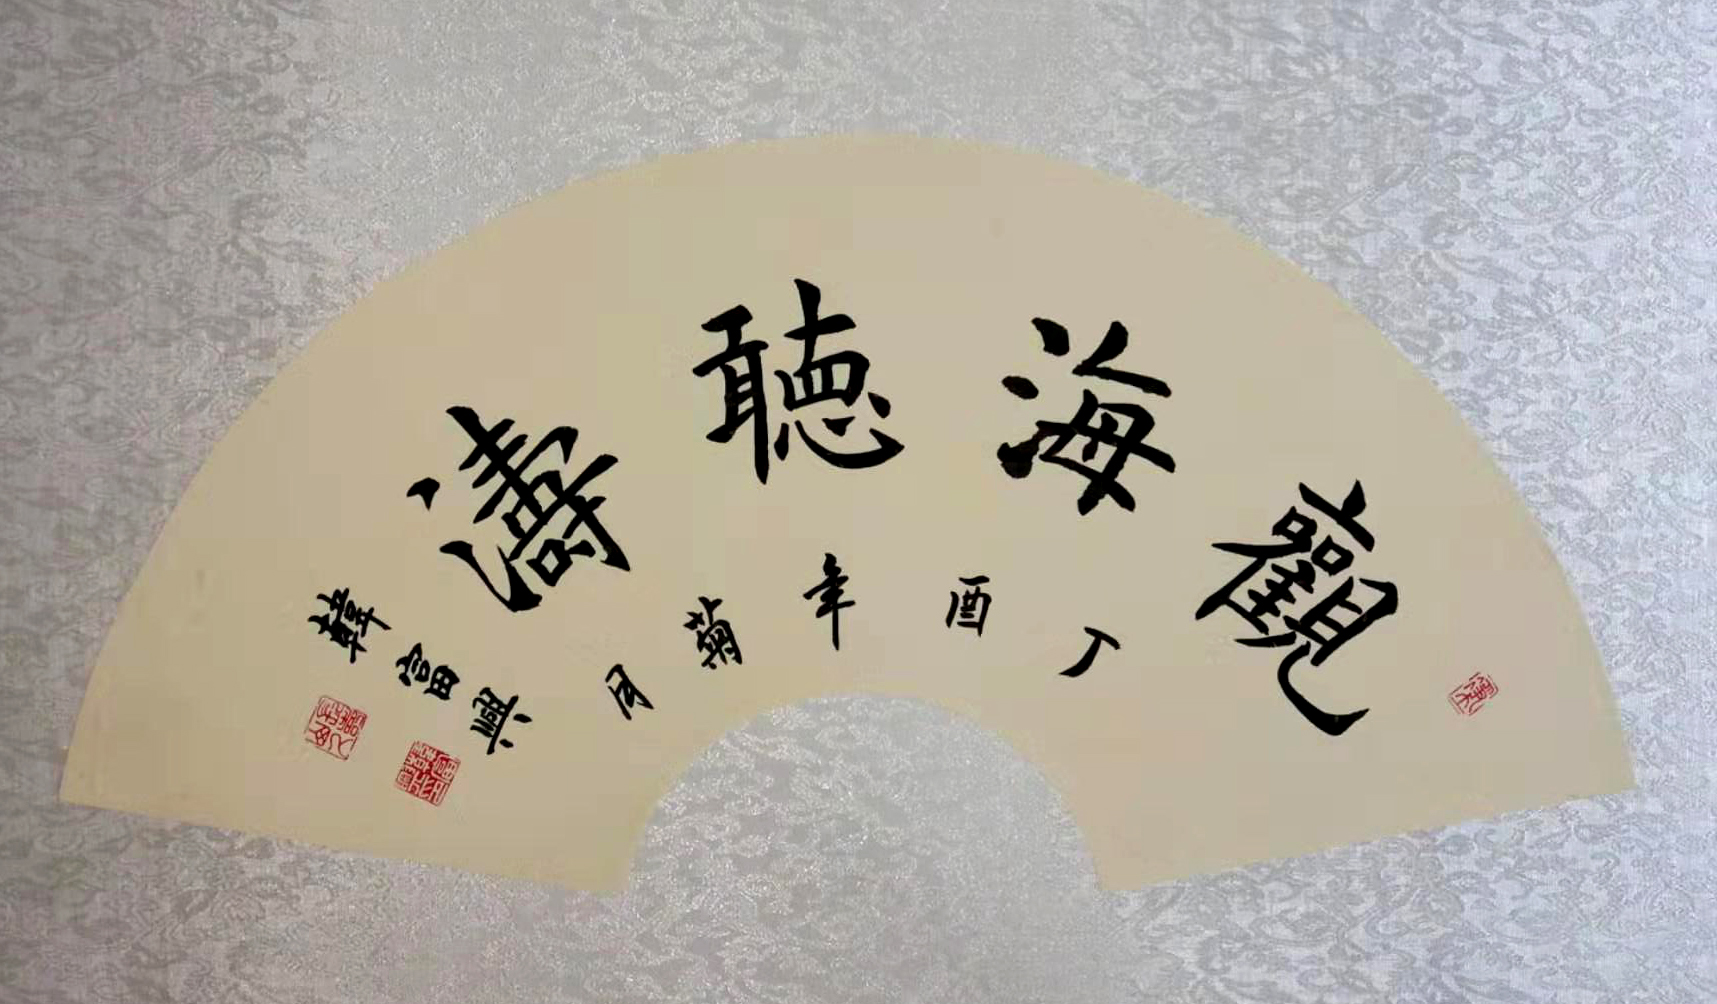 觀海聽濤
丁酉年菊月
韓富興